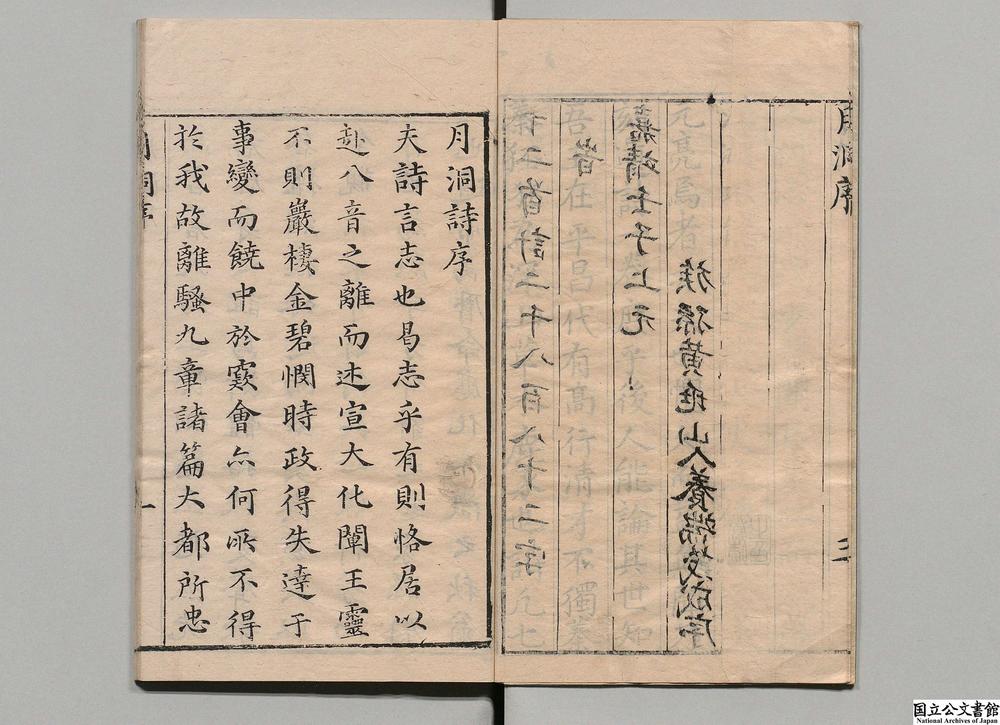 月洞序 三
十二首計三千八百八十二字
嘉靖壬子上元
族孫黃山人養端茂成序
月洞詩序
夫詩言志也曷志乎有則恪居以
赴八音之離而述宣大化闡王靈
不則巖棲金碧憫時政得失達于
事變而饒中於窾會亦何所不得
於我故離騷九章諸篇大都所忠
月洞序 一
国立公文書館
National Archives of Japan